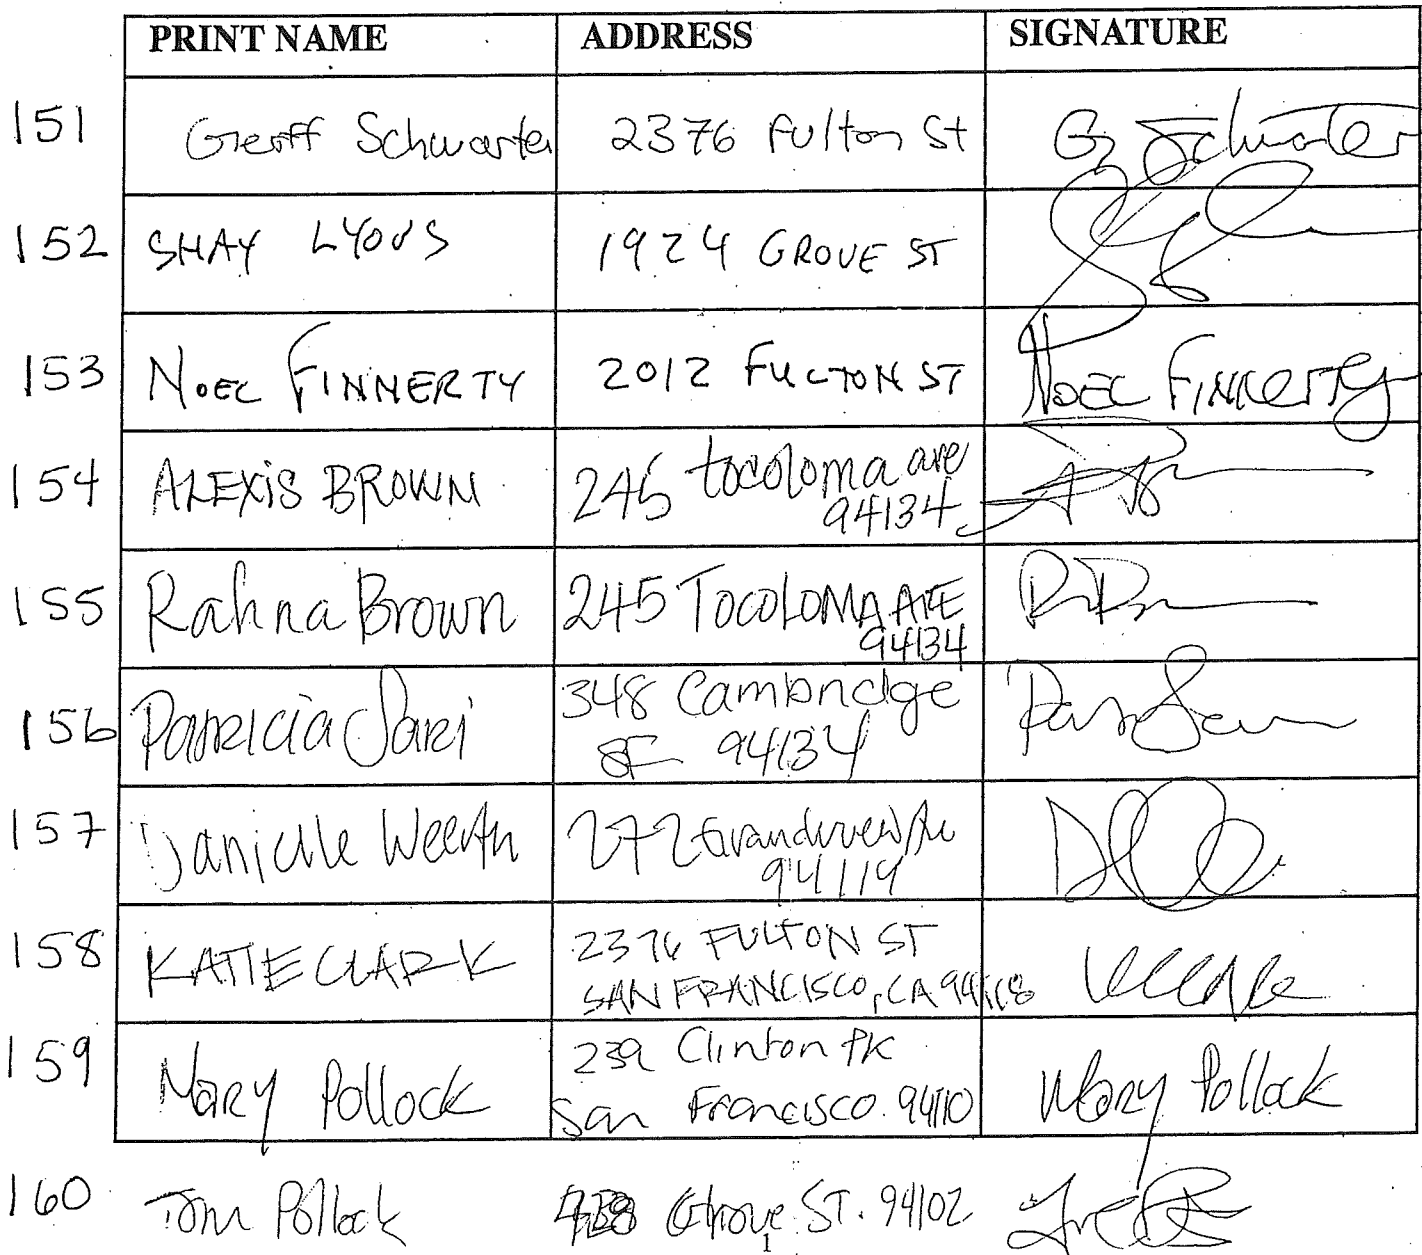 PRINT NAME ADDRESS SIGNATURE
151 Geoff Schwarter 2376 Fulton St G Schwarter
152 SHAY LYONS 1924 GROVE ST
153 NOEL FINNERTY 2012 FULTON ST NOEL FINNERTY
154 ALEXIS BROWN 245 tocoloma ave
94134
155 Rahna Brown 245 TOCOLOMA AVE
94134
156 PATRICIA Sari 348 Cambridge
SF 94134
157 Danielle 272
158 KATIE CLARK 2376 FULTON ST
SAN FRANCISCO, CA 94118
159 Mary Pollock 239 Clinton PK Mary Pollock
San Francisco. 94110
160 Tom Pollock Grove ST. 94102
1